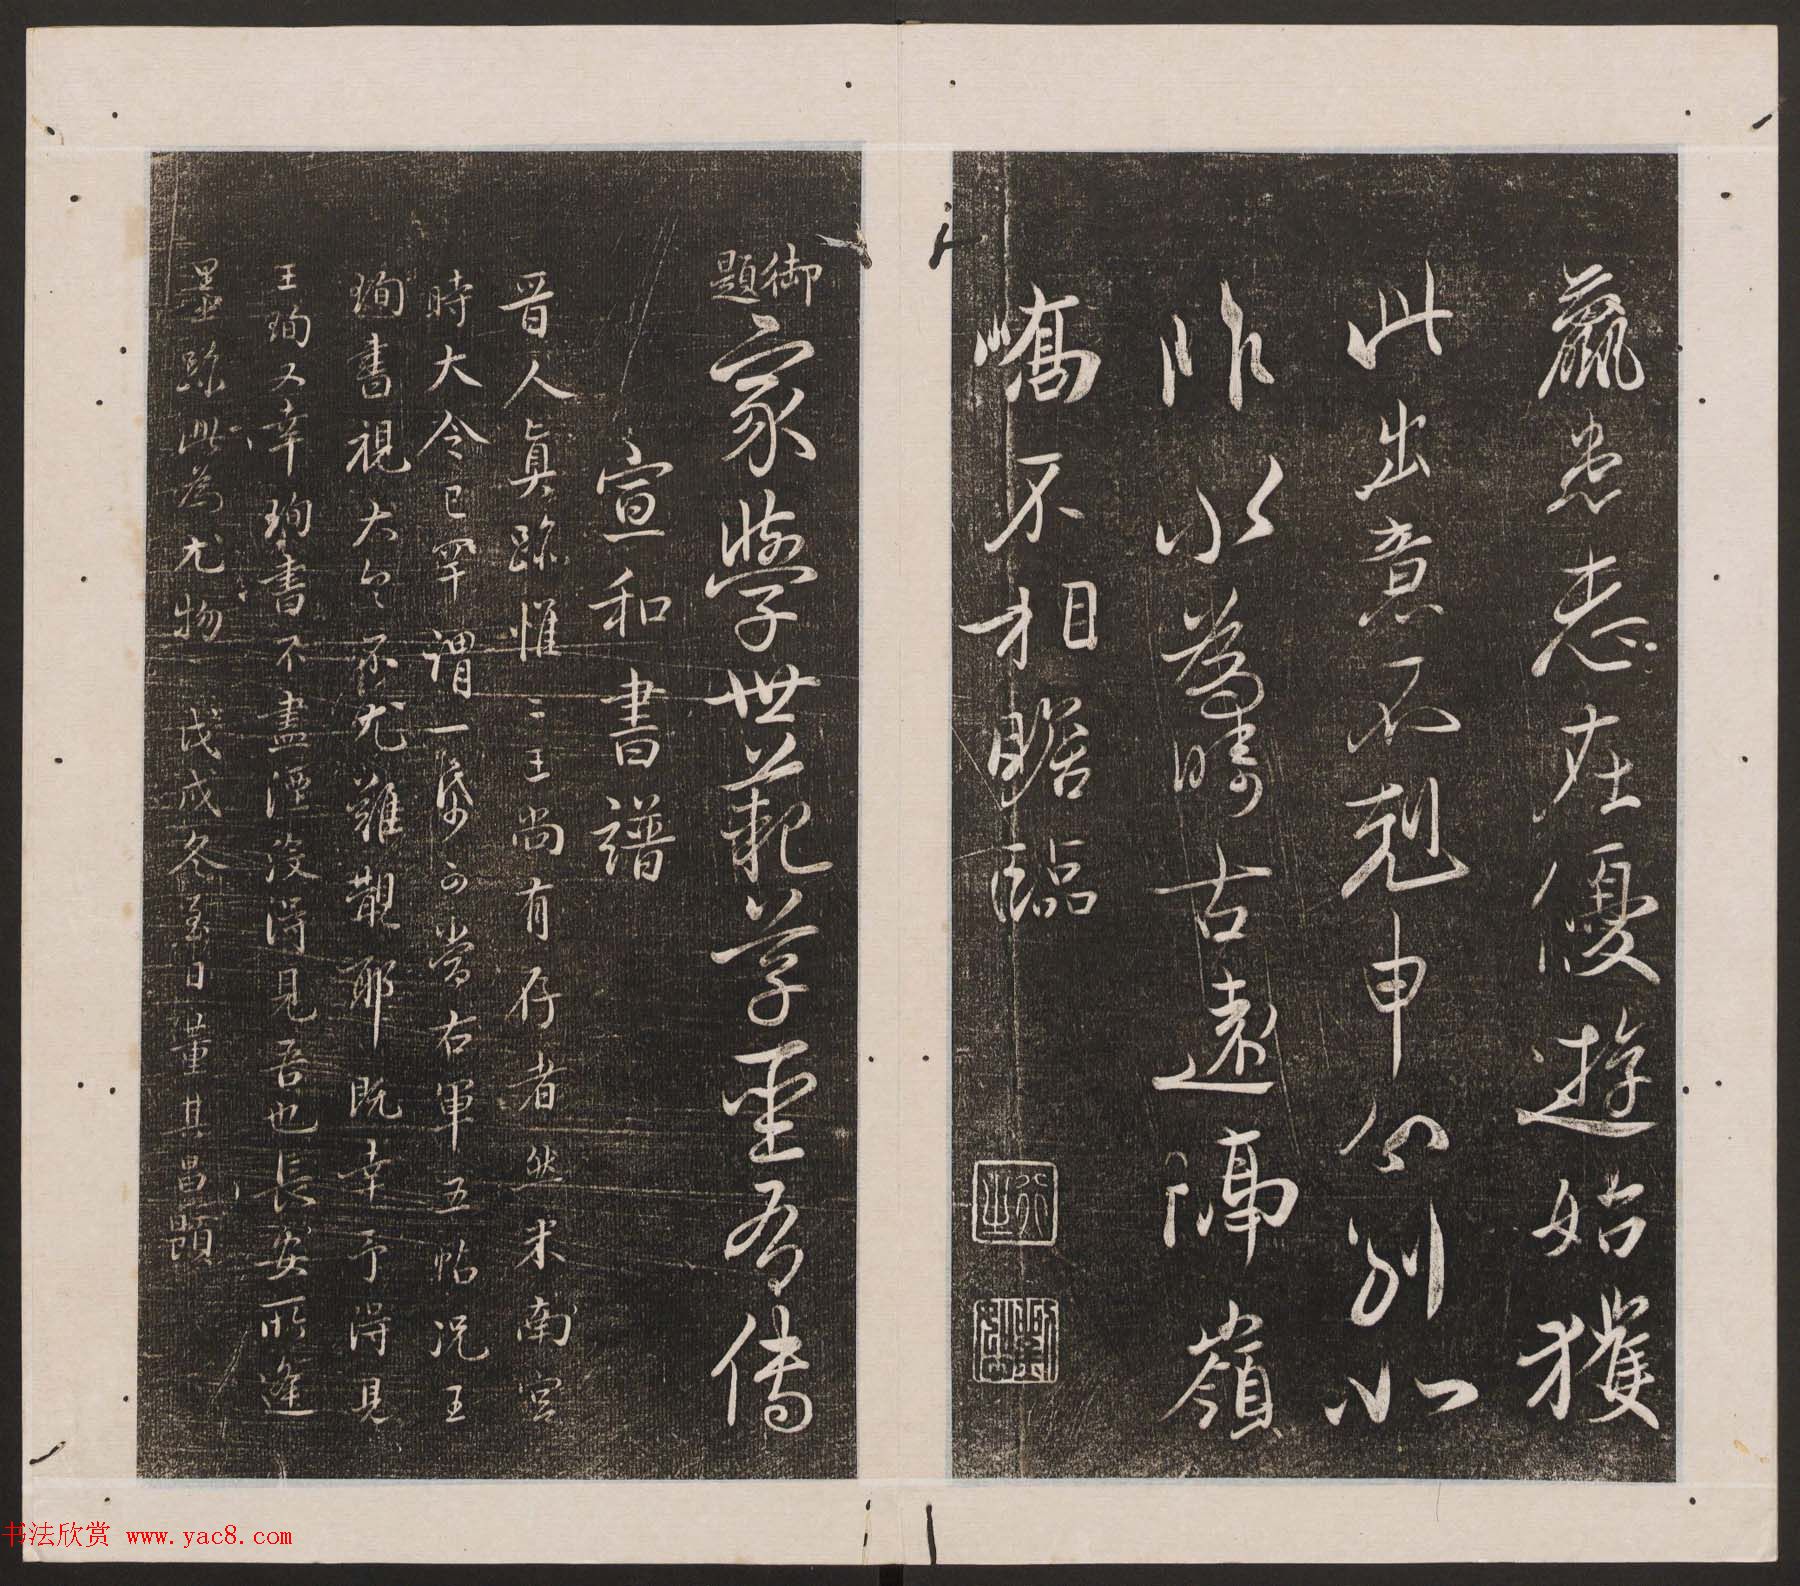 羸患志在優遊始獲
此出意不剋申分別如
昨永為疇古遠隔嶺
嶠不相瞻臨
御題
家學世範草聖有傳
宣和書譜
晉人真跡惟二王尚有存者然米南宮
時大令已罕謂一紙可當右軍五帖況王
珣書視大令不尤難覯耶既幸予得見
王珣又幸珣書不盡湮沒得見吾也長安所逢
墨跡此為尤物 戊戌冬至日董其昌題
书法欣赏 www.yac8.com